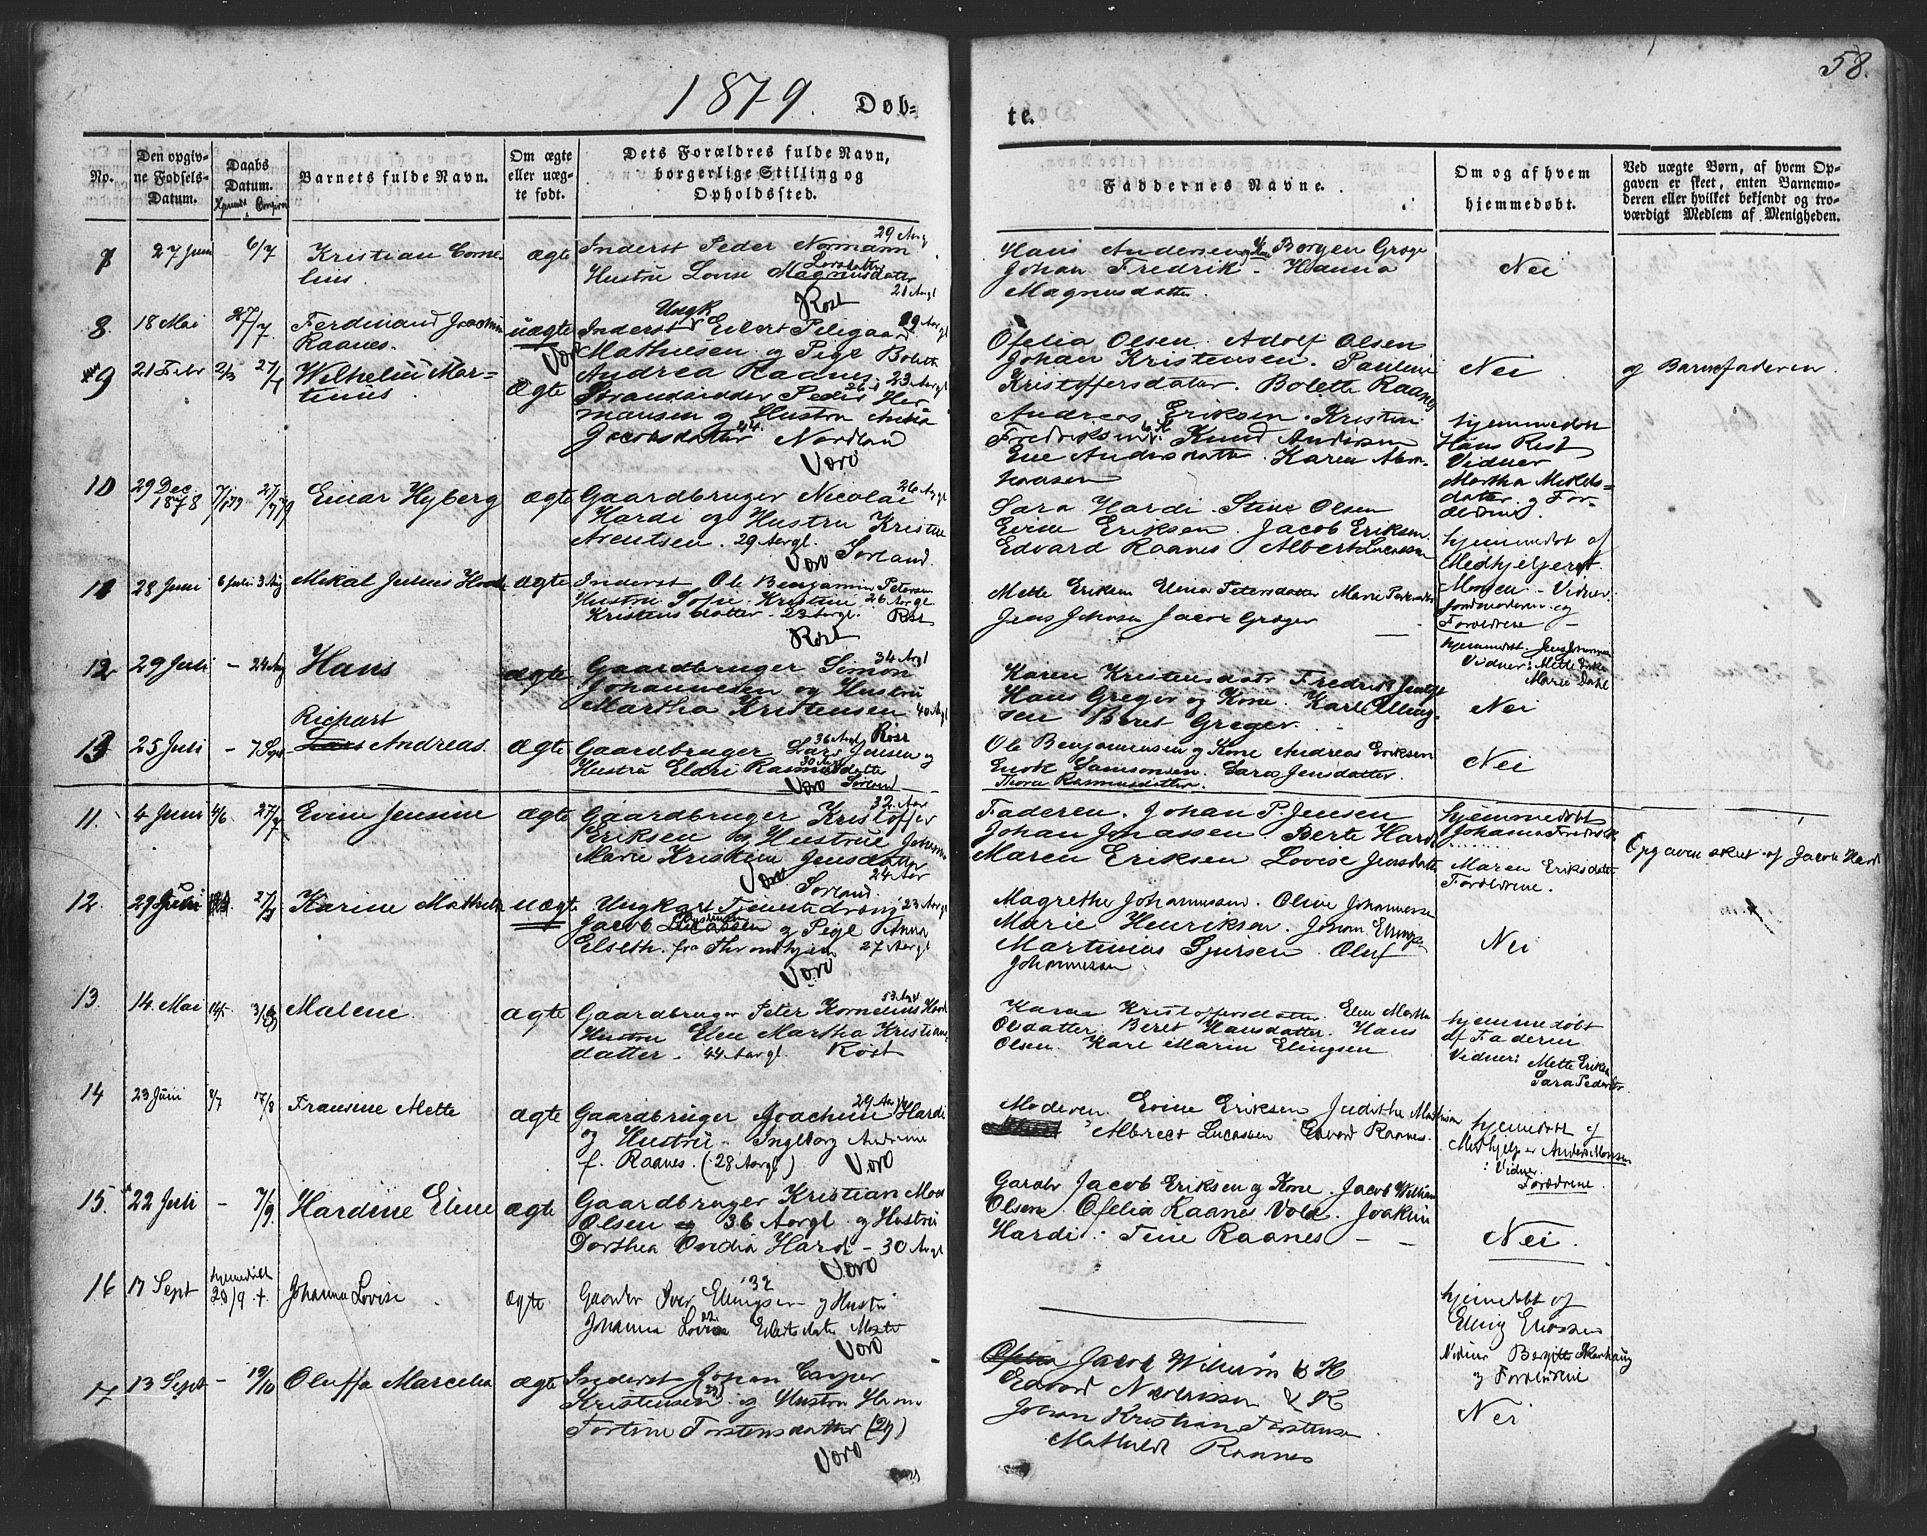 1879.
Døb=
te.
58.
No.
Den opgiv-
ne Fødsels-
Datum.
Daabs
Datum.
Barnets fulde Navn.
Om ægte
eller uæg-
te født.
Dets Forældres fulde Navn,
borgerlige Stilling og
Opholdssted.
Faddernes Navne.
Om og af hvem
hjemmedøbt.
Ved uægte Børn, af hvem Op-
gaven er skeet, enten Barnemo-
deren eller hvilket bekjendt og tro-
værdigt Medlem af Menigheden.
7 27 Juni 6/7 Kristian Corne
lius. ægte
Inderst Peder Normann 29 Aarg
Hustru Lovise Magnusdatter
21 Aargl
Røst
Hans Andersen Borgen Greger
Johan Fredrik - Hanna
Magnusdatter.
Nei
8 18 Mai 27/7 Ferdinand Joachim
Raanes. uægte
Ungk
Inderst Eilert Peligaard 29 Aargl
Mathiesen og Pige Bolette
Andrea Raanes. 23 Aargl
Værø
Ofelia Olsen. Adolf Olsen
Johan Kristensen. Pauline
Kristoffersdatter. Bolette Raanes
Nei
og Barnefaderen.
9 21 Febr 2/3 27/7 Wilhelm Mar-
tinus ægte
Strandsidder Peder Her 26
mansen og Hustru Anna
Jacobsdatter 24. Nordland
Værø
Andreas Eriksen. Kristine
Fredriksen Knud Andersen
Ene Andersdatter. Karen Abra-
hamsen
hjemmedøbt
Hans Rist
Vidner
Martha Mikkels=
datter og For-
ældrene.
10 29 Dec. 1878 7/1 79 27/7 79 Einar Hyberg ægte
Gaardbruger Nicolai 26 Aargl
Hardi og Hustru Kristine
Arentsen. 29 Aargl.
Værø Sørland.
Sara Hardi. Stine Olsen
Evine Eriksen. Jacob Eriksen.
Edvard Raanes Albert Lucassen
hjemmedøbt af
Medhjelperst
Monsen - Vidner:
Jordmoderen og
Forældrene -
11 28 Juni 6 Juli 3 Aug Mikal Julius ægte
Inderst Ole Benjamin Petersen
Hustru Sofie Kristine 26 Aargl
Kristensdatter - 23 Aargl. Røst
Røst
Mette Eriksen Petersdatter Marie
Jens Johnsen Jacob Greger
hjemmedøbt
Vidner: Mette Eriksen
Marie Dahl
12 29 Juli - 24 Aug Hans ægte
Gaardbruger Simon 34 Aargl
Johannesen og Hustru
Martha Kristensen 40 Aargl
Røst
Karen Kristensdatter Fredrik
Hans Greger og Kone. Karl Elling-
sen Beret Greger.
Nei
13 25 Juli - 7 Sept Richart
Lars Andreas. ægte
Gaardbruger Lars Jensen og 36 Aargl
Hustru Eldri Rasmusdatter 30 Aargl
Værø Sørland
Ole Benjaminsen og Kone Andreas Eriksen
Enok Samsonsen. Sara Jensdatter.
Thora Rasmusdatter.
Nei
11. 4 Juni 4/6 27/7 Evine Jensine ægte
Gaardbruger Kristoffer 32 Aar
Eriksen og Hustrue Johanna
Marie Kristine Jensdatter
24 Aar
Værø Sørland.
Faderen. Johan P. Jensen
Johan Jonassen. Berte Hardi
Maren Eriksen Lovise Jensdatter
hjemmedøbt
Johanna Fredriksen
Maren Eriksdatter
Forældrene.
Opgaven skeet af Jacob Hardi
12. 29 Juni 27/7 Karine Mathilde uægte
Ungkarl Tjenestedreng 23 Aargl
Jacob Lucassen og Pige Anna
Elseth. fra Throndhjem 27 Aargl
Værø
Magrethe Johannesen. Oline Johannesse
Marie Henriksen. Johan Ellingsen
Martinus Sjursen Oluf
Johannesen
Nei
13. 14 Mai 14/5 3/8 Malene. ægte
Gaardbruger Peter Kornelius 53 Aargl
Hustru Elen Martha Kristians
datter - 44 Aargl. Røst
Karen Kristoffersdatter. Elen Martha
Olsdatter. Beret Hansdatter. Hans
Olsen. Karl Marin Elingsen
hjemmedøbt
af Faderen
Vidner: Mette Eriksen
Sara Pedersdtr
14 23 Juni 2/7 17/8 Fransine Mette ægte
Gaardbruger Joachim Hardi 29 Aar
og Hustru - Ingeborg Andrine
f. Raanes. (28 Aargl)
Værø
Moderen. Evine Eriksen Judithe Mathisen
Albrect Lucassen Edvard Raanes.
hjemmedøbt af
Medhjelper Anders Monsen
: Vidner.
Forældrene
15. 22 Juli - 7/9 Hardine Eline ægte
Gaardbruger Kristian Moe
Olsen 36 Aargl. og Hustru
Dorthea Ovidia Hardi - 30 Aargl
Værø
Gaardbr Jacob Eriksen og Kone. Jacob Wilhelm
Olsen Ofelia Raanes Vold. Joakim
Hardi. Tine Raanes - -
Nei.
16 17 Sept hjemmedøbt
20/9 + Johanna Lovise. ægte.
Gaardbr Iver Ellingsen 32 og Hustru
Johanna Lovise 22 Eilertsdatter
Værø
hjemmedøbt af
Elling
Vidner Marhaug
og Forældrene
17 13 Sept - 19/10 Oluffa Marcelia ægte
Inderst Johan Casper
Kristensen og Hustru Hanna
Tortine Torstensdatter (29)
Værø
Jacob Wilhelm & H
Edvard & K
Johan Kristian Torstensen
Mathilde Raanes
Nei